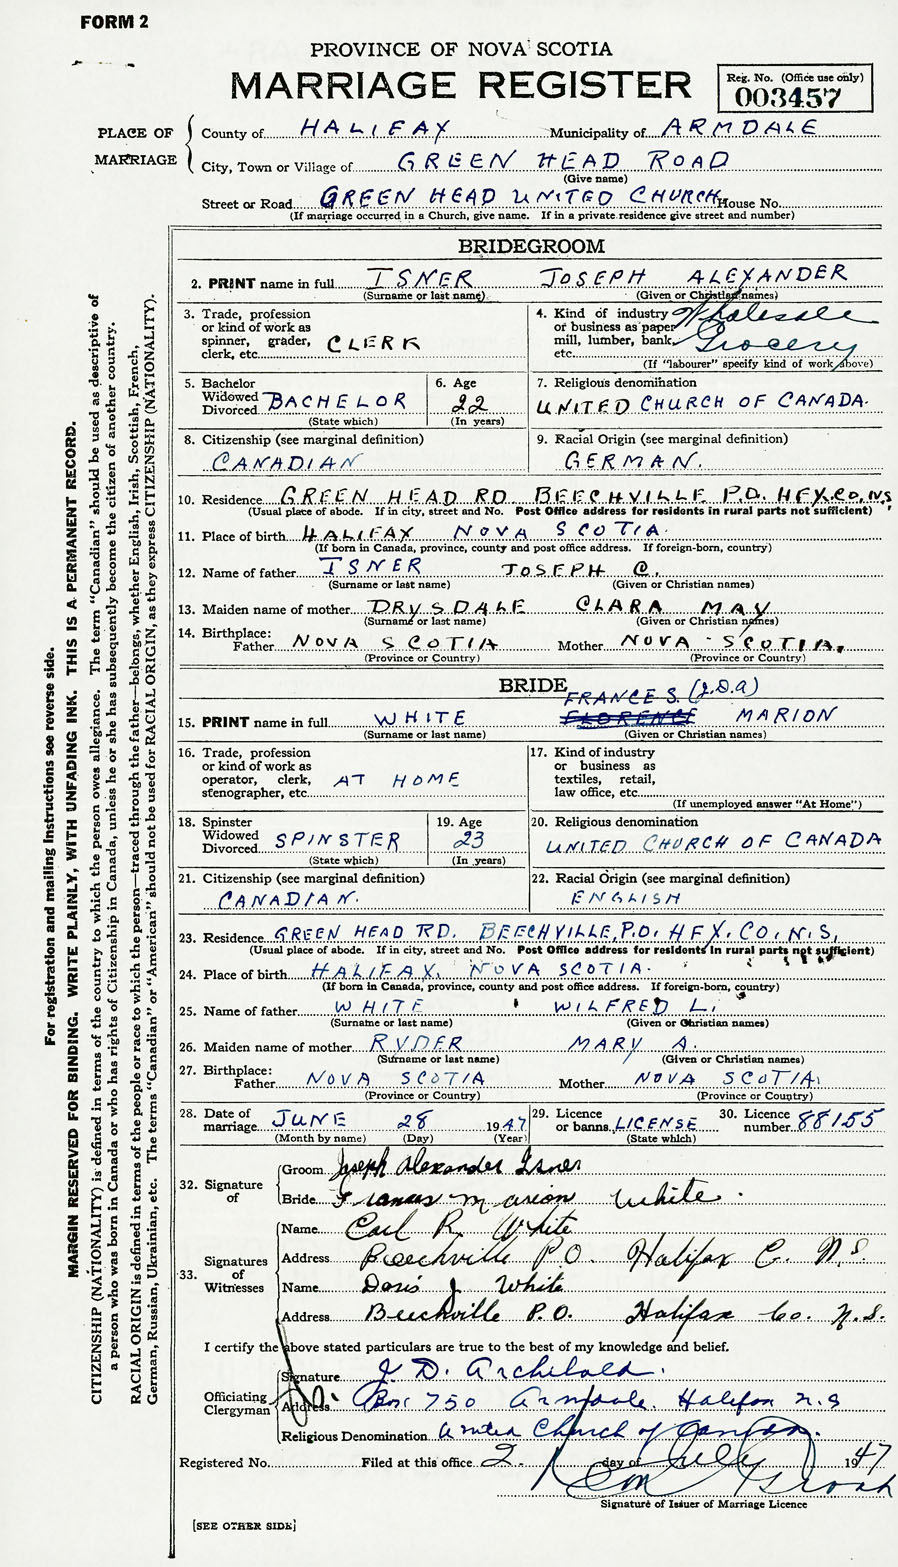 FORM 2
PROVINCE OF NOVA SCOTIA
MARRIAGE REGISTER
Reg. No. (Office use only)
003457
PLACE OF MARRIAGE
County of HALIFAX Municipality of ARMDALE
City, Town or Village of GREEN HEAD ROAD
(Give name)
Street or Road GREEN HEAD UNITED CHURCH House No.
(If marriage occurred in a Church, give name. If in a private residence give street and number)
BRIDEGROOM
2. PRINT name in full ISNER JOSEPH ALEXANDER
(Surname or last name) (Given or Christian names)
3. Trade, profession or kind of work as spinner, grader, clerk, etc. CLERK
4. Kind of industry or business as paper mill, lumber, bank, etc. Wholesale Grocery
(If "labourer" specify kind of work above)
5. Bachelor Widowed Divorced BACHELOR
(State which)
6. Age 22
(In years)
7. Religious denomination
UNITED CHURCH OF CANADA.
8. Citizenship (see marginal definition)
CANADIAN
9. Racial Origin (see marginal definition)
GERMAN.
10. Residence GREEN HEAD RD. BEECHVILLE P.O. HFX.CO,NS
(Usual place of abode. If in city, street and No. Post Office address for residents in rural parts not sufficient)
11. Place of birth HALIFAX NOVA SCOTIA.
(If born in Canada, province, county and post office address. If foreign-born, country)
12. Name of father ISNER JOSEPH C.
(Surname or last name) (Given or Christian names)
13. Maiden name of mother DRYSDALE CLARA MAY
(Surname or last name) (Given or Christian names)
14. Birthplace:
Father NOVA SCOTIA Mother NOVA SCOTIA.
(Province or Country) (Province or Country)
BRIDE
FRANCES. (J.D.A)
15. PRINT name in full WHITE FLORENCE MARION
(Surname or last name) (Given or Christian names)
16. Trade, profession or kind of work as operator, clerk, stenographer, etc. AT HOME
17. Kind of industry or business as textiles, retail, law office, etc.
(If unemployed answer "At Home")
18. Spinster Widowed Divorced SPINSTER
(State which)
19. Age 23
(In years)
20. Religious denomination
UNITED CHURCH OF CANADA
21. Citizenship (see marginal definition)
CANADIAN.
22. Racial Origin (see marginal definition)
ENGLISH
23. Residence GREEN HEAD RD. BEECHVILLE, P.O. HFX. CO. N.S,
(Usual place of abode. If in city, street and No. Post Office address for residents in rural parts not sufficient)
24. Place of birth HALIFAX, NOVA SCOTIA.
(If born in Canada, province, county and post office address. If foreign-born, country)
25. Name of father WHITE WILFRED L.
(Surname or last name) (Given or Christian names)
26. Maiden name of mother RYDER MARY A.
(Surname or last name) (Given or Christian names)
27. Birthplace:
Father NOVA SCOTIA Mother NOVA SCOTIA.
(Province or Country) (Province or Country)
28. Date of marriage JUNE 28 1947
(Month by name) (Day) (Year)
29. Licence or banns LICENSE
(State which)
30. Licence number 88155
32. Signature of
Groom Joseph Alexander Isner
Bride Frances Marion White.
33. Signatures of Witnesses
Name Carl R. White
Address Beechville P.O. Halifax C. N.S.
Name Doris J. White
Address Beechville P.O. Halifax Co. N.S.
I certify the above stated particulars are true to the best of my knowledge and belief.
Officiating Clergyman
Signature J. D. Archibald.
Address Box 750 Armdale. Halifax N.S
Religious Denomination United Church of Canada.
Registered No. Filed at this office 2. day of July 1947
Signature of Issuer of Marriage Licence
[SEE OTHER SIDE]
For registration and mailing instructions see reverse side.
MARGIN RESERVED FOR BINDING. WRITE PLAINLY, WITH UNFADING INK. THIS IS A PERMANENT RECORD.
CITIZENSHIP (NATIONALITY) is defined in terms of the country to which the person owes allegiance. The term "Canadian" should be used as descriptive of
a person who was born in Canada or who has rights of Citizenship in Canada, unless he or she has subsequently become the citizen of another country.
RACIAL ORIGIN is defined in terms of the people or race to which the person—traced through the father—belongs, whether English, Irish, Scottish, French,
German, Russian, Ukrainian, etc. The terms "Canadian" or "American" should not be used for RACIAL ORIGIN, as they express CITIZENSHIP (NATIONALITY).